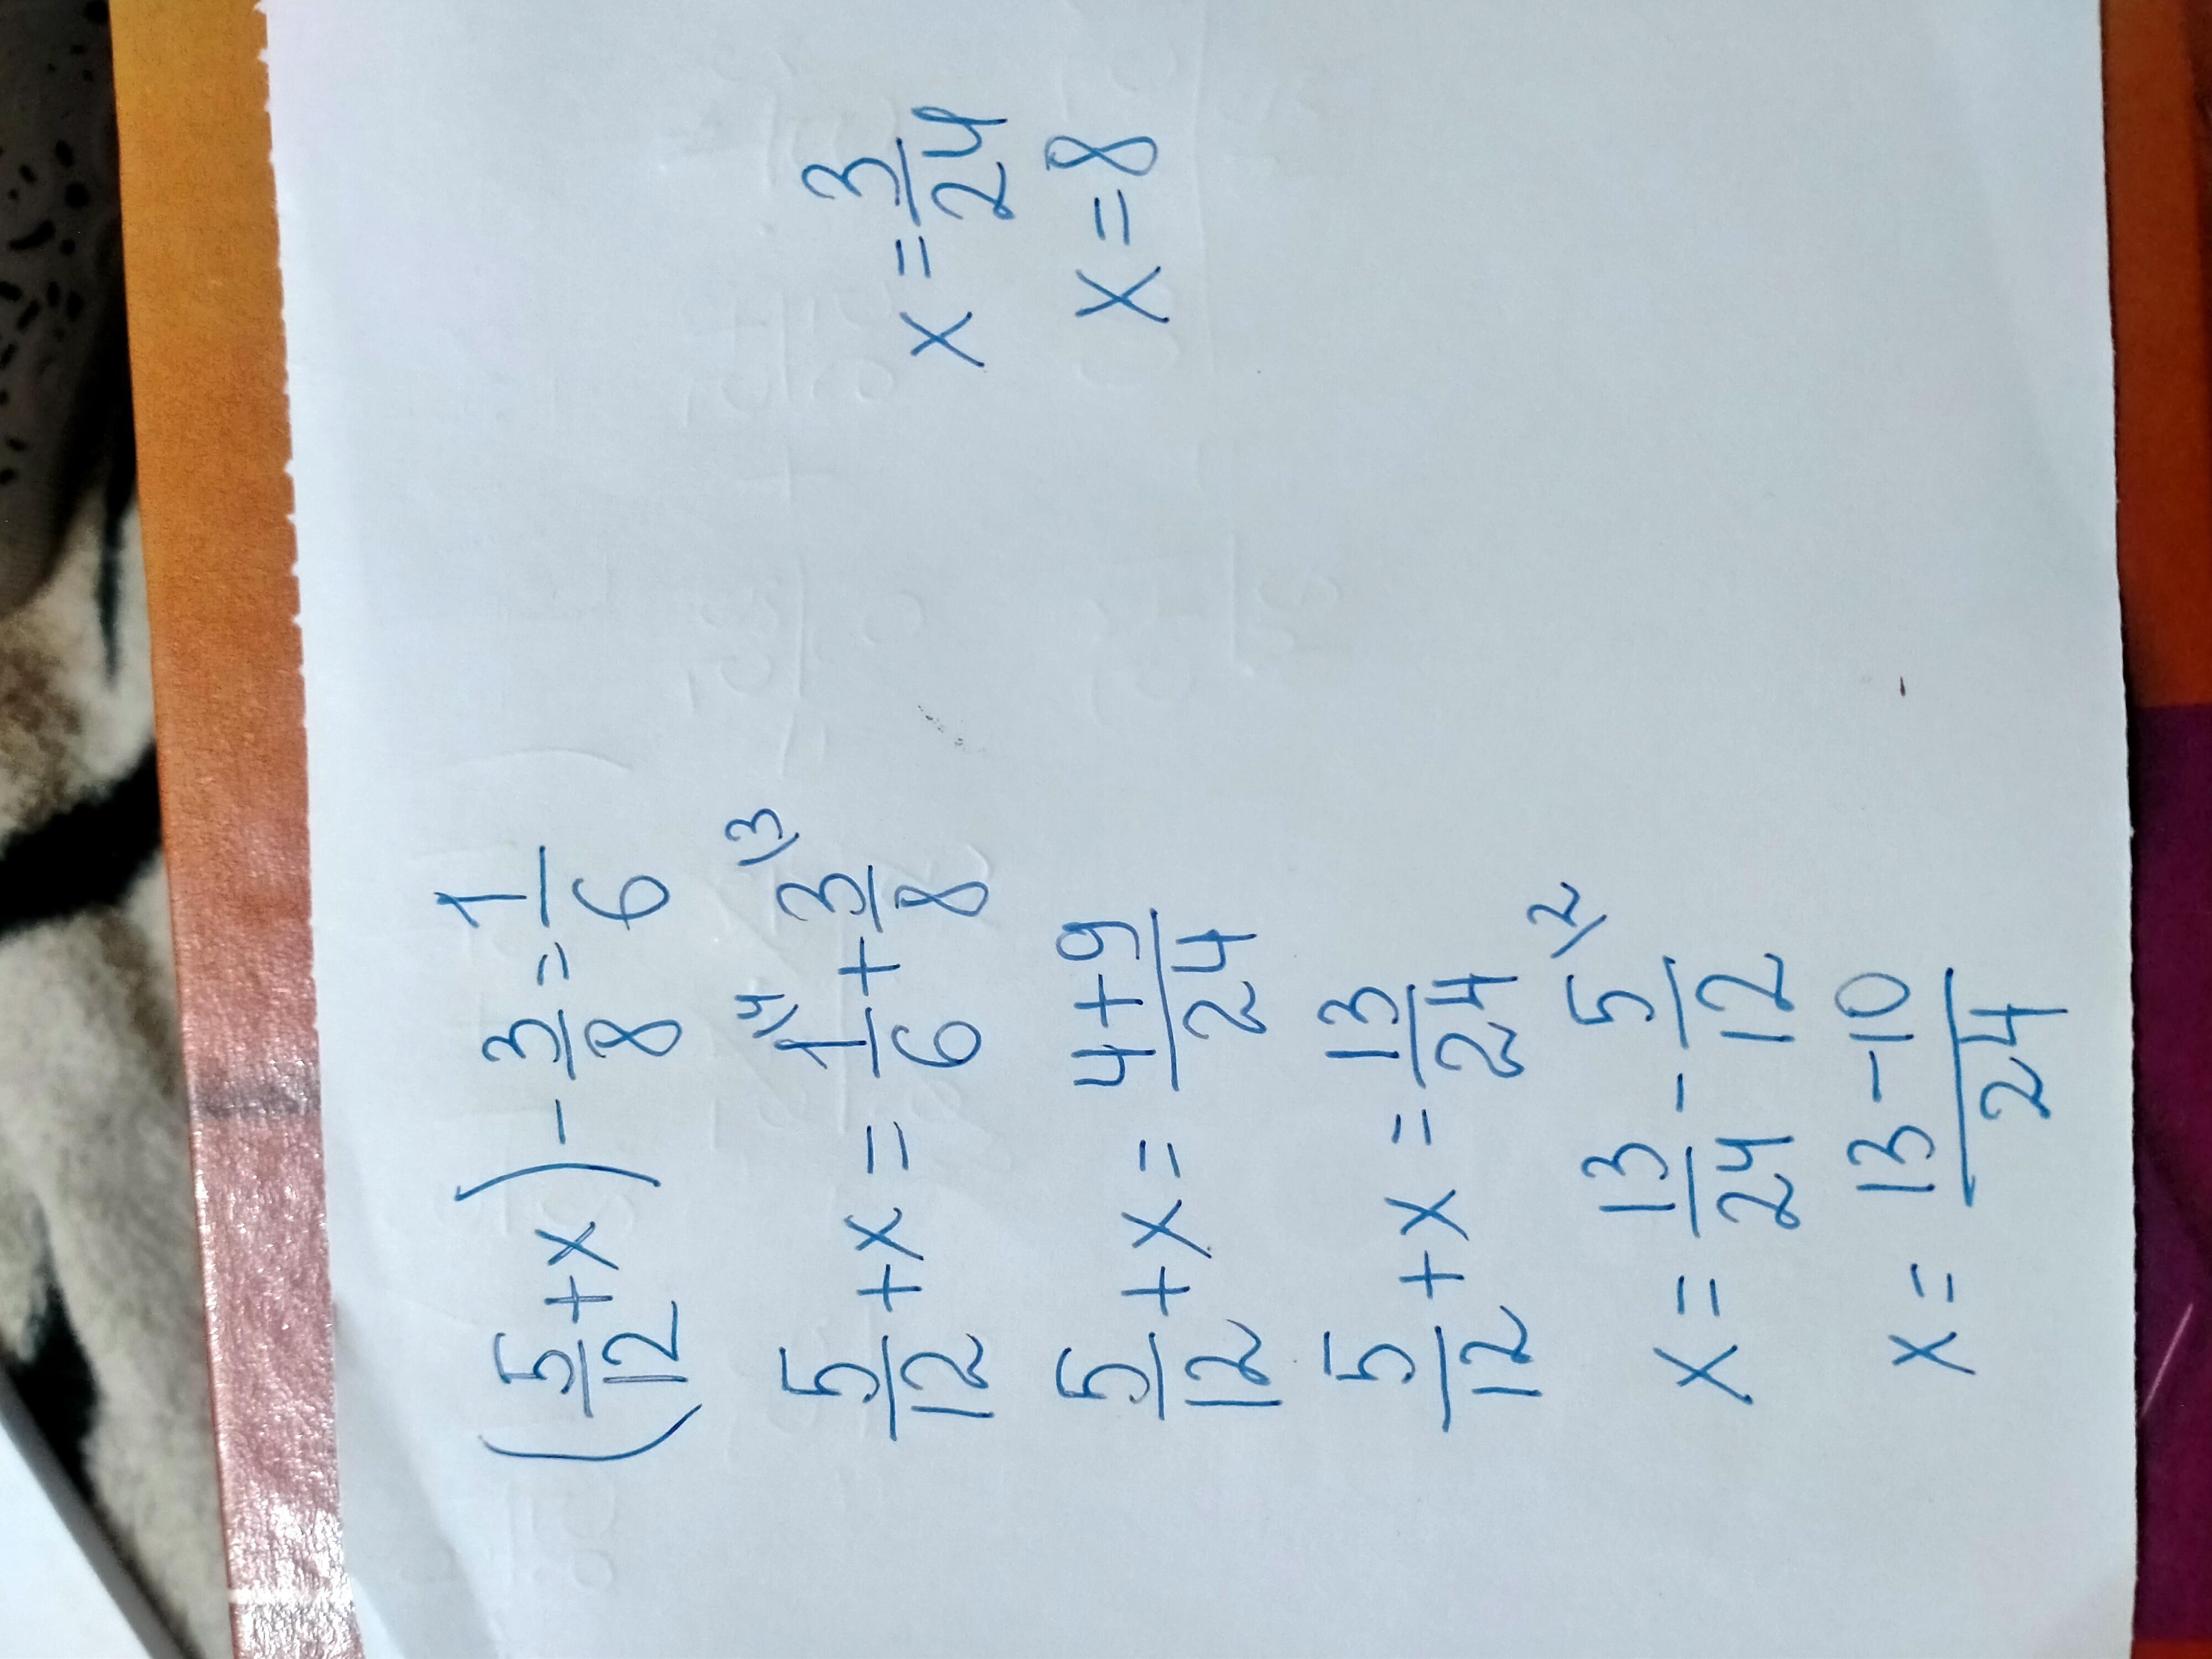 (5/12 + x) - 3/8 = 1/6
5/12 + x = 1/6 \4 + 3/8 \3
5/12 + x = 4+9/24
5/12 + x = 13/24
x = 13/24 - 5/12 \2
x = 13-10/24
x = 3/24
x = 8